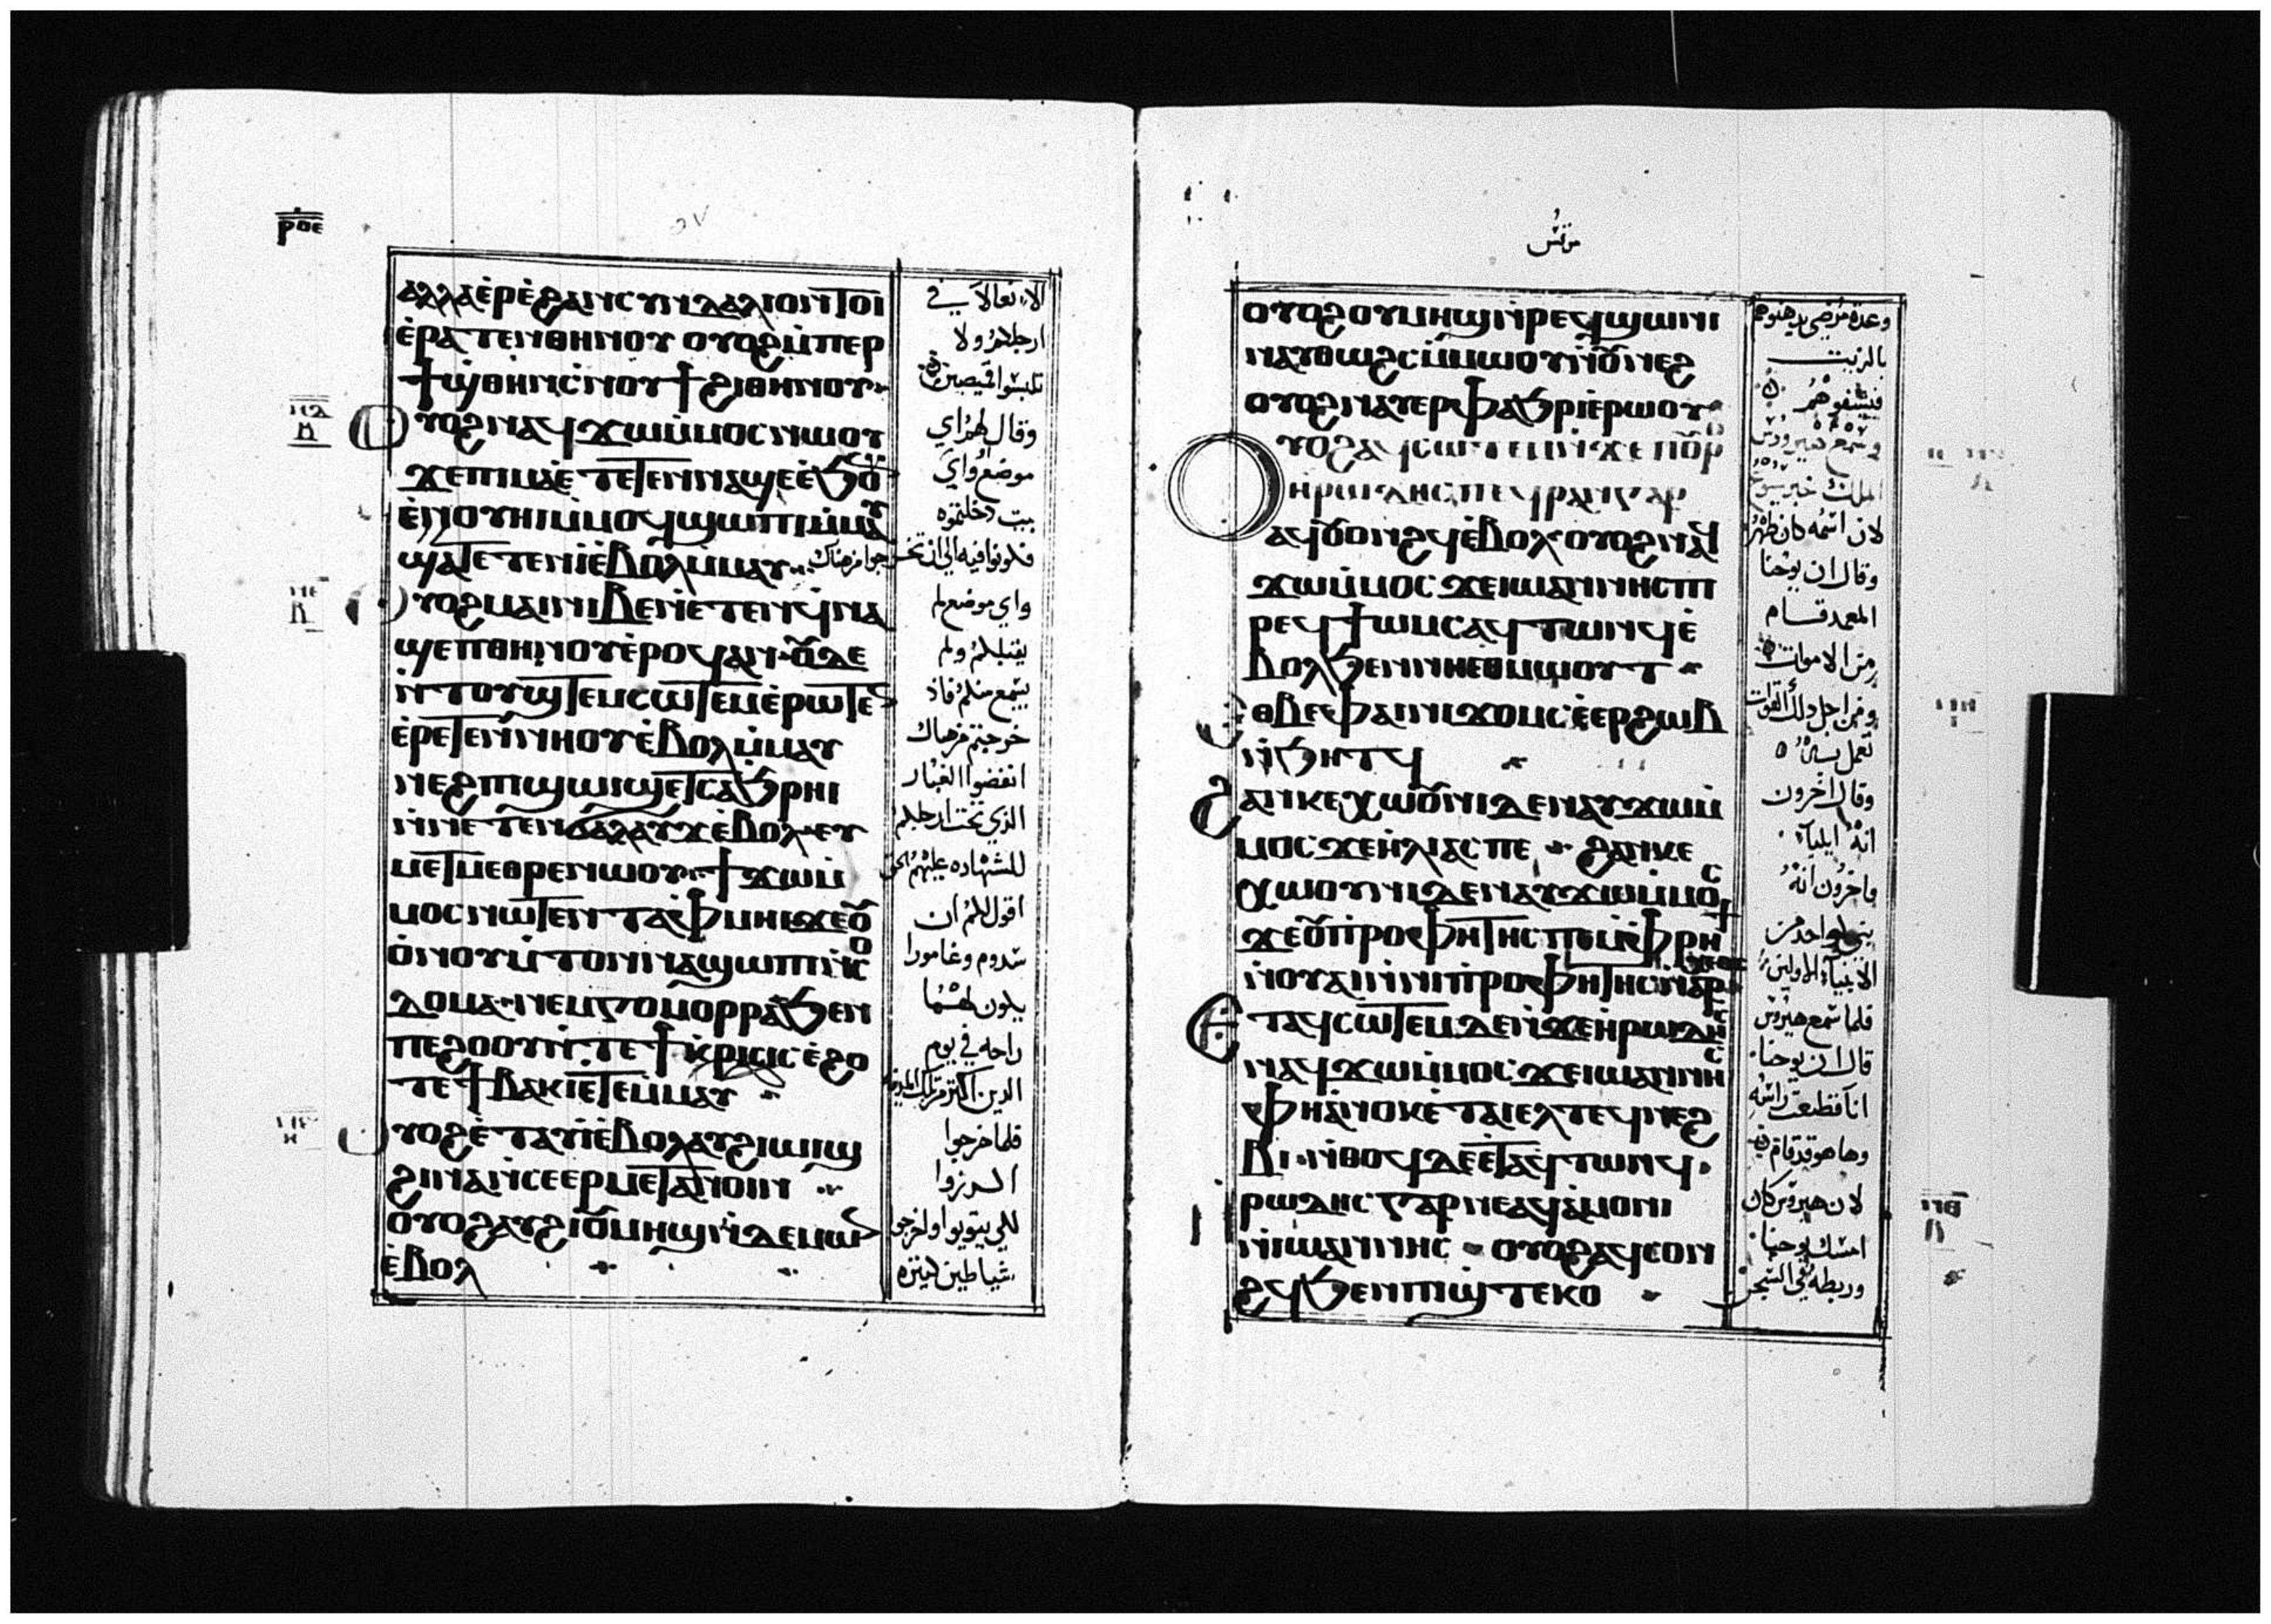 ⲣⲟⲉ
ⲁⲗⲗⲁ ⲉ̀ⲣⲉ ϩⲁⲛⲥⲩⲛⲇⲁⲗⲓⲟⲛ ⲧⲟⲓ
ⲉ̀ⲣⲁⲧⲉⲛⲑⲏⲛⲟⲩ ⲟⲩⲟϩ ⲙ̀ⲡⲉⲣ
ϯϣ̀ⲑⲏⲛ ⲥ̀ⲛⲟⲩϯ ϩⲓⲑⲏⲛⲟⲩ
ⲟⲩⲟϩ ⲛⲁϥϫⲱ ⲙ̀ⲙⲟⲥ ⲛⲱⲟⲩ
ϫⲉ ⲡⲓⲙⲁ ⲉ̀ⲧⲉⲧⲉⲛⲛⲁϣⲉ ⲉ̀ϧⲟⲩ
ⲉ̀ⲛⲟⲩⲏⲓ ⲙ̀ⲙⲟϥ ϣⲱⲡⲓ ⲙ̀ⲙⲁⲩ
ϣⲁⲧⲉⲧⲉⲛⲓ̀ ⲉ̀ⲃⲟⲗ ⲙ̀ⲙⲁⲩ
ⲟⲩⲟϩ ⲙⲁ ⲛⲓⲃⲉⲛ ⲉ̀ⲧⲉⲛⲥ̀ⲛⲁ
ϣⲉⲡⲑⲏⲛⲟⲩ ⲉ̀ⲣⲟϥ ⲁⲛ ⲟⲩⲇⲉ
ⲛ̀ⲧⲟⲩϣⲧⲉⲙⲥⲱⲧⲉⲙ ⲉ̀ⲣⲱⲧⲉ
ⲉ̀ⲣⲉⲧⲉⲛⲛ̀ⲛⲏⲟⲩ ⲉ̀ⲃⲟⲗ ⲙ̀ⲙⲁⲩ
ⲛⲉϩ ⲡϣⲱⲓϣ ⲉⲧⲥⲁϧⲣⲏⲓ
ⲛ̀ⲛⲉⲧⲉⲛϭⲁⲗⲁⲩϫ ⲉ̀ⲃⲟⲗ ⲉⲩ
ⲙⲉⲧⲙⲉⲑⲣⲉ ⲛⲱⲟⲩ ϯϫⲱ ⲙ̀
ⲙⲟⲥ ⲛⲱⲧⲉⲛ ⲧⲁⲫⲙⲏⲓ ϫⲉ ⲟⲩ
ⲟⲛ ⲟⲩⲙ̀ⲧⲟⲛ ⲛⲁϣⲱⲡⲓ ⲛ̀ⲥⲟ
ⲇⲟⲙⲁ ⲛⲉⲙ ⲅⲟⲙⲟⲣⲣⲁ ϧⲉⲛ
ⲡⲉϩⲟⲟⲩ ⲛ̀ⲧⲉ ϯⲕⲣⲓⲥⲓⲥ ⲉ̀ϩⲟ
ⲧⲉ ϯⲃⲁⲕⲓ ⲉⲧⲉⲙ̀ⲙⲁⲩ
ⲟⲩⲟϩ ⲉ̀ⲧⲁⲩⲓ̀ ⲉ̀ⲃⲟⲗ ⲁⲩϩⲓⲱⲓϣ
ϩⲓⲛⲁ ⲛ̀ⲥⲉⲉⲣⲙⲉⲧⲁⲛⲟⲓⲛ
ⲟⲩⲟϩ ⲁⲩϩⲓ ⲟⲩⲙⲏϣ ⲛ̀ⲇⲉⲙⲱⲛ
ⲉ̀ⲃⲟⲗ
الا نعالا في
ارجلكم ولا
تلبسوا قميصين
وقال لهم اي
موضع واي
بيت دخلتموه
فكونوا فيه الي ان تخرجوا من هناك
واي موضع لم
يقبلكم ولم
يسمع منكم فاذ
خرجتم من هناك
انفضوا الغبار
الذي تحت ارجلكم
للشهاده عليهم الحق
اقول لكم ان
سدوم وغامورا
يكون لهما
راحه في يوم
الدين اكثر من تلك المدينه
فلما خرجوا
للي يتوبوا واخرجو
شياطين كثيره
مرقس
ⲟⲩⲟϩ ⲟⲩⲙⲏϣ ⲛ̀ⲣⲉϥϣⲱⲛⲓ
ⲛⲁⲩⲑⲱϩⲥ ⲙ̀ⲙⲱⲟⲩ ⲛ̀ⲟⲩⲛⲉϩ
ⲟⲩⲟϩ ⲛⲁⲩⲉⲣⲫⲁϧⲣⲓ ⲉ̀ⲣⲱⲟⲩ
ⲟⲩⲟϩ ⲁϥⲥⲱⲧⲉⲙ ⲛ̀ϫⲉ ⲡⲟⲩⲣⲟ
ⲏⲣⲱⲇⲏⲥ ⲡⲉϥⲣⲁⲛ ⲅⲁⲣ
ⲁϥⲟⲩⲟⲛϩϥ ⲉ̀ⲃⲟⲗ ⲟⲩⲟϩ ⲛⲁϥ
ϫⲱ ⲙ̀ⲙⲟⲥ ϫⲉ ⲓⲱⲁⲛⲛⲏⲥ ⲡⲓ
ⲣⲉϥϯⲱⲙⲥ ⲁϥⲧⲱⲛϥ ⲉ̀
ⲃⲟⲗ ϧⲉⲛ ⲛⲏⲉⲑⲙⲱⲟⲩⲧ
ⲉⲑⲃⲉ ⲫⲁⲓ ⲛⲓϫⲟⲙ ⲥⲉⲉⲣϩⲱⲃ
ⲛ̀ϧⲏⲧϥ
ϩⲁⲛⲕⲉⲭⲱⲟⲩⲛⲓ ⲇⲉ ⲛⲁⲩϫⲱ ⲙ̀
ⲙⲟⲥ ϫⲉ ⲏ̀ⲗⲓⲁⲥ ⲡⲉ ϩⲁⲛⲕⲉ
ⲭⲱⲟⲩⲛⲓ ⲇⲉ ⲛⲁⲩϫⲱ ⲙ̀ⲙⲟⲥ
ϫⲉ ⲟⲩⲡⲣⲟⲫⲏⲧⲏⲥ ⲡⲉ ⲙ̀ⲫⲣⲏϯ
ⲛ̀ⲟⲩⲁⲓ ⲛ̀ⲛⲓⲡⲣⲟⲫⲏⲧⲏⲥ ⲛ̀ⲁⲣⲭⲉⲟⲥ
ⲉⲧⲁϥⲥⲱⲧⲉⲙ ⲇⲉ ⲛ̀ϫⲉ ⲏⲣⲱⲇⲏⲥ
ⲛⲁϥϫⲱ ⲙ̀ⲙⲟⲥ ϫⲉ ⲓⲱⲁⲛⲛⲏⲥ
ⲫⲏ ⲁ̀ⲛⲟⲕ ⲉ̀ⲧⲁⲓⲉⲗ ⲧⲉϥⲛⲁϩ
ⲃⲓ ⲛ̀ⲑⲟϥ ⲇⲉ ⲉⲧⲁϥⲧⲱⲛϥ
ⲣⲱⲇⲏⲥ ⲅⲁⲣ ⲛⲉⲁϥⲁ̀ⲙⲟⲛⲓ
ⲛ̀ⲓⲱⲁⲛⲛⲏⲥ ⲟⲩⲟϩ ⲁϥⲥⲟⲛ
ϩϥ ϧⲉⲛ ⲡϣ̀ⲧⲉⲕⲟ
وعدة مرضي يدهنوهم
بالزيت
فيشفوهم
وسمع هيرودس
الملك خبر يسوع
لان اسمه كان ظهر
وقال ان يوحنا
المعمد قام
من الاموات
ومن اجل ذلك القوات
تعمل به
وقال اخرون
انه ايليا
واخرون انه
نبي كواحد من
الانبيآء الاولين
فلما سمع هيرودس
قال ان يوحنا
انا قطعت راسه
وها هو قد قام
لان هيرودس كان
امسك يوحنا
وربطه في السجن